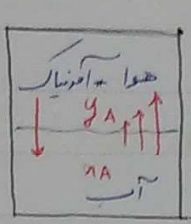 هوا - آمونیاک
yA
xA
آب